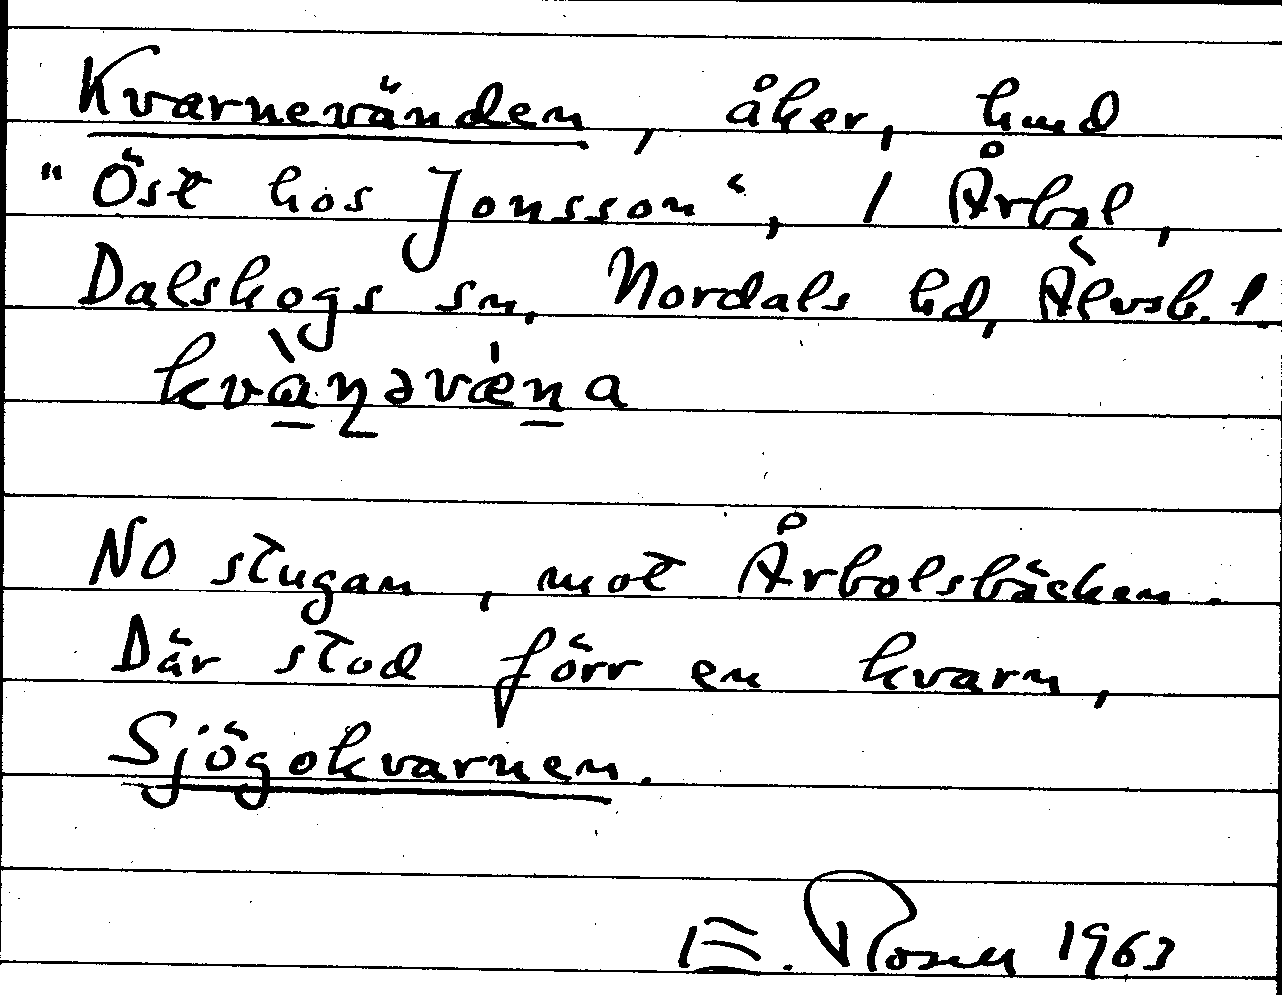 Kvarnevänden, åker, hmd
"Öst hos Jonsson", 1 Årbol,
Dalskogs sn, Nordals hd, Älvsb. l.
kvàɳəvæ̀na
NO stugan, mot Årbolsbäcken.
Där stod förr en kvarn,
Sjögokvarnen.
E. Rosell 1963